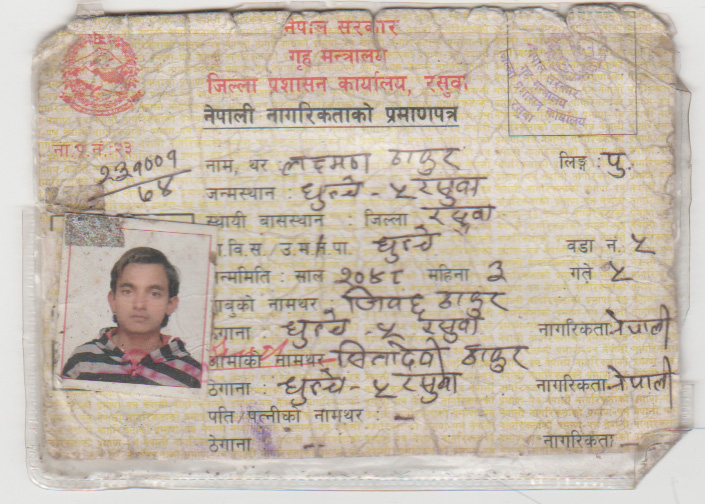 नेपाल सरकार
गृह मन्त्रालय
जिल्ला प्रशासन कार्यालय, रसुवा
नेपाली नागरिकताको प्रमाणपत्र
ना.प्र.नं. २३
२३१००१
७४
नाम, थर लक्ष्मण ठाकुर लिङ्ग : पु.
जन्मस्थान : धुन्चे - ५ रसुवा
स्थायी बासस्थान : जिल्ला रसुवा
गा.वि.स./उ.म./न.पा. धुन्चे वडा नं. ५
जन्ममिति : साल २०४८ महिना ३ गते ५
बाबुको नामथर : ठाकुर
ठेगाना : धुन्चे - ५ रसुवा नागरिकता नेपाली
आमाको नामथर सितादेवी ठाकुर
ठेगाना : धुन्चे - ५ रसुवा नागरिकता नेपाली
पति/पत्नीको नामथर : -
ठेगाना : -- नागरिकता --